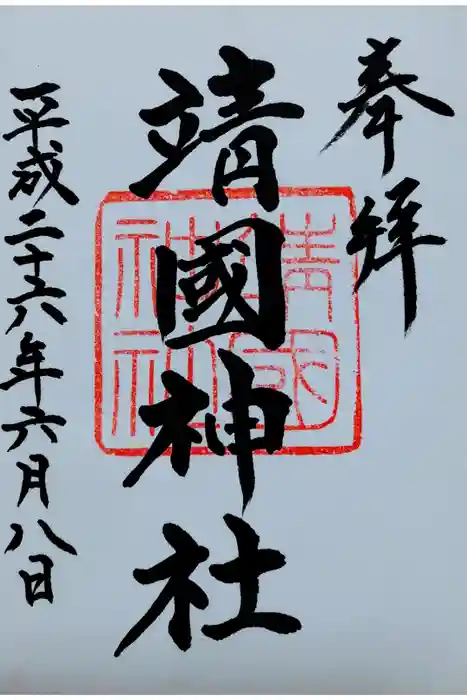 奉拝
靖國神社
平成二十六年六月八日
靖國
神社